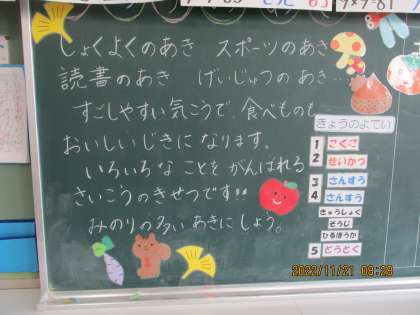 9×9=81
しょくよくのあき スポーツのあき
読書のあき げいじゅつのあき…
すごしやすい気こうで、食べものも
おいしいじきになります。
いろいろなことをがんばれる
さいこうのきせつです!!
みのりの多いあきにしよう。
きょうのよてい
1 さくご
2 せいかつ
3 さんすう
4 さんすう
きゅうしょく
そうじ
ひるほうか
5 どうとく
2022/11/21 08:28